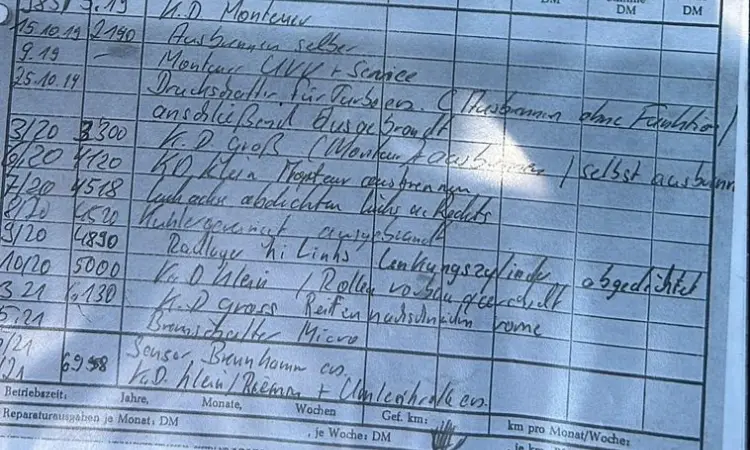 DM DM DM
9.19 K.D Monteur
15.10.19 2190 Ausbrennen selber
9.19 – Monteur UVV + Service
25.10.19 Druckschalter für Turbo ers. (Ausbrennen ohne Funktion)
anschließend Ausgebrandt
3/20 3300 K.D groß (Monteur + ausbrennen / selbst ausbrenn
6/20 4120 KD klein Monteur ausbrennen
7/20 4518 abdichten links u. Rechts
8/20 4520 Kühler ausgebaut
9/20 4890 Radlager hi Links, Lenkungszylinder abgedichtet
10/20 5000 K.D klein / Rollen
3 21 6130 K.D gross Reifen nachschneiden vorne
5.21 Bremsschalter Micro
/21 Sensor ers.
/21 6958 K.D. klein / Riemen + Umlenkrolle ers.
Betriebszeit: Jahre, Monate, Wochen Gef. km: km pro Monat/Woche:
Reparaturausgaben je Monat: DM , je Woche: DM